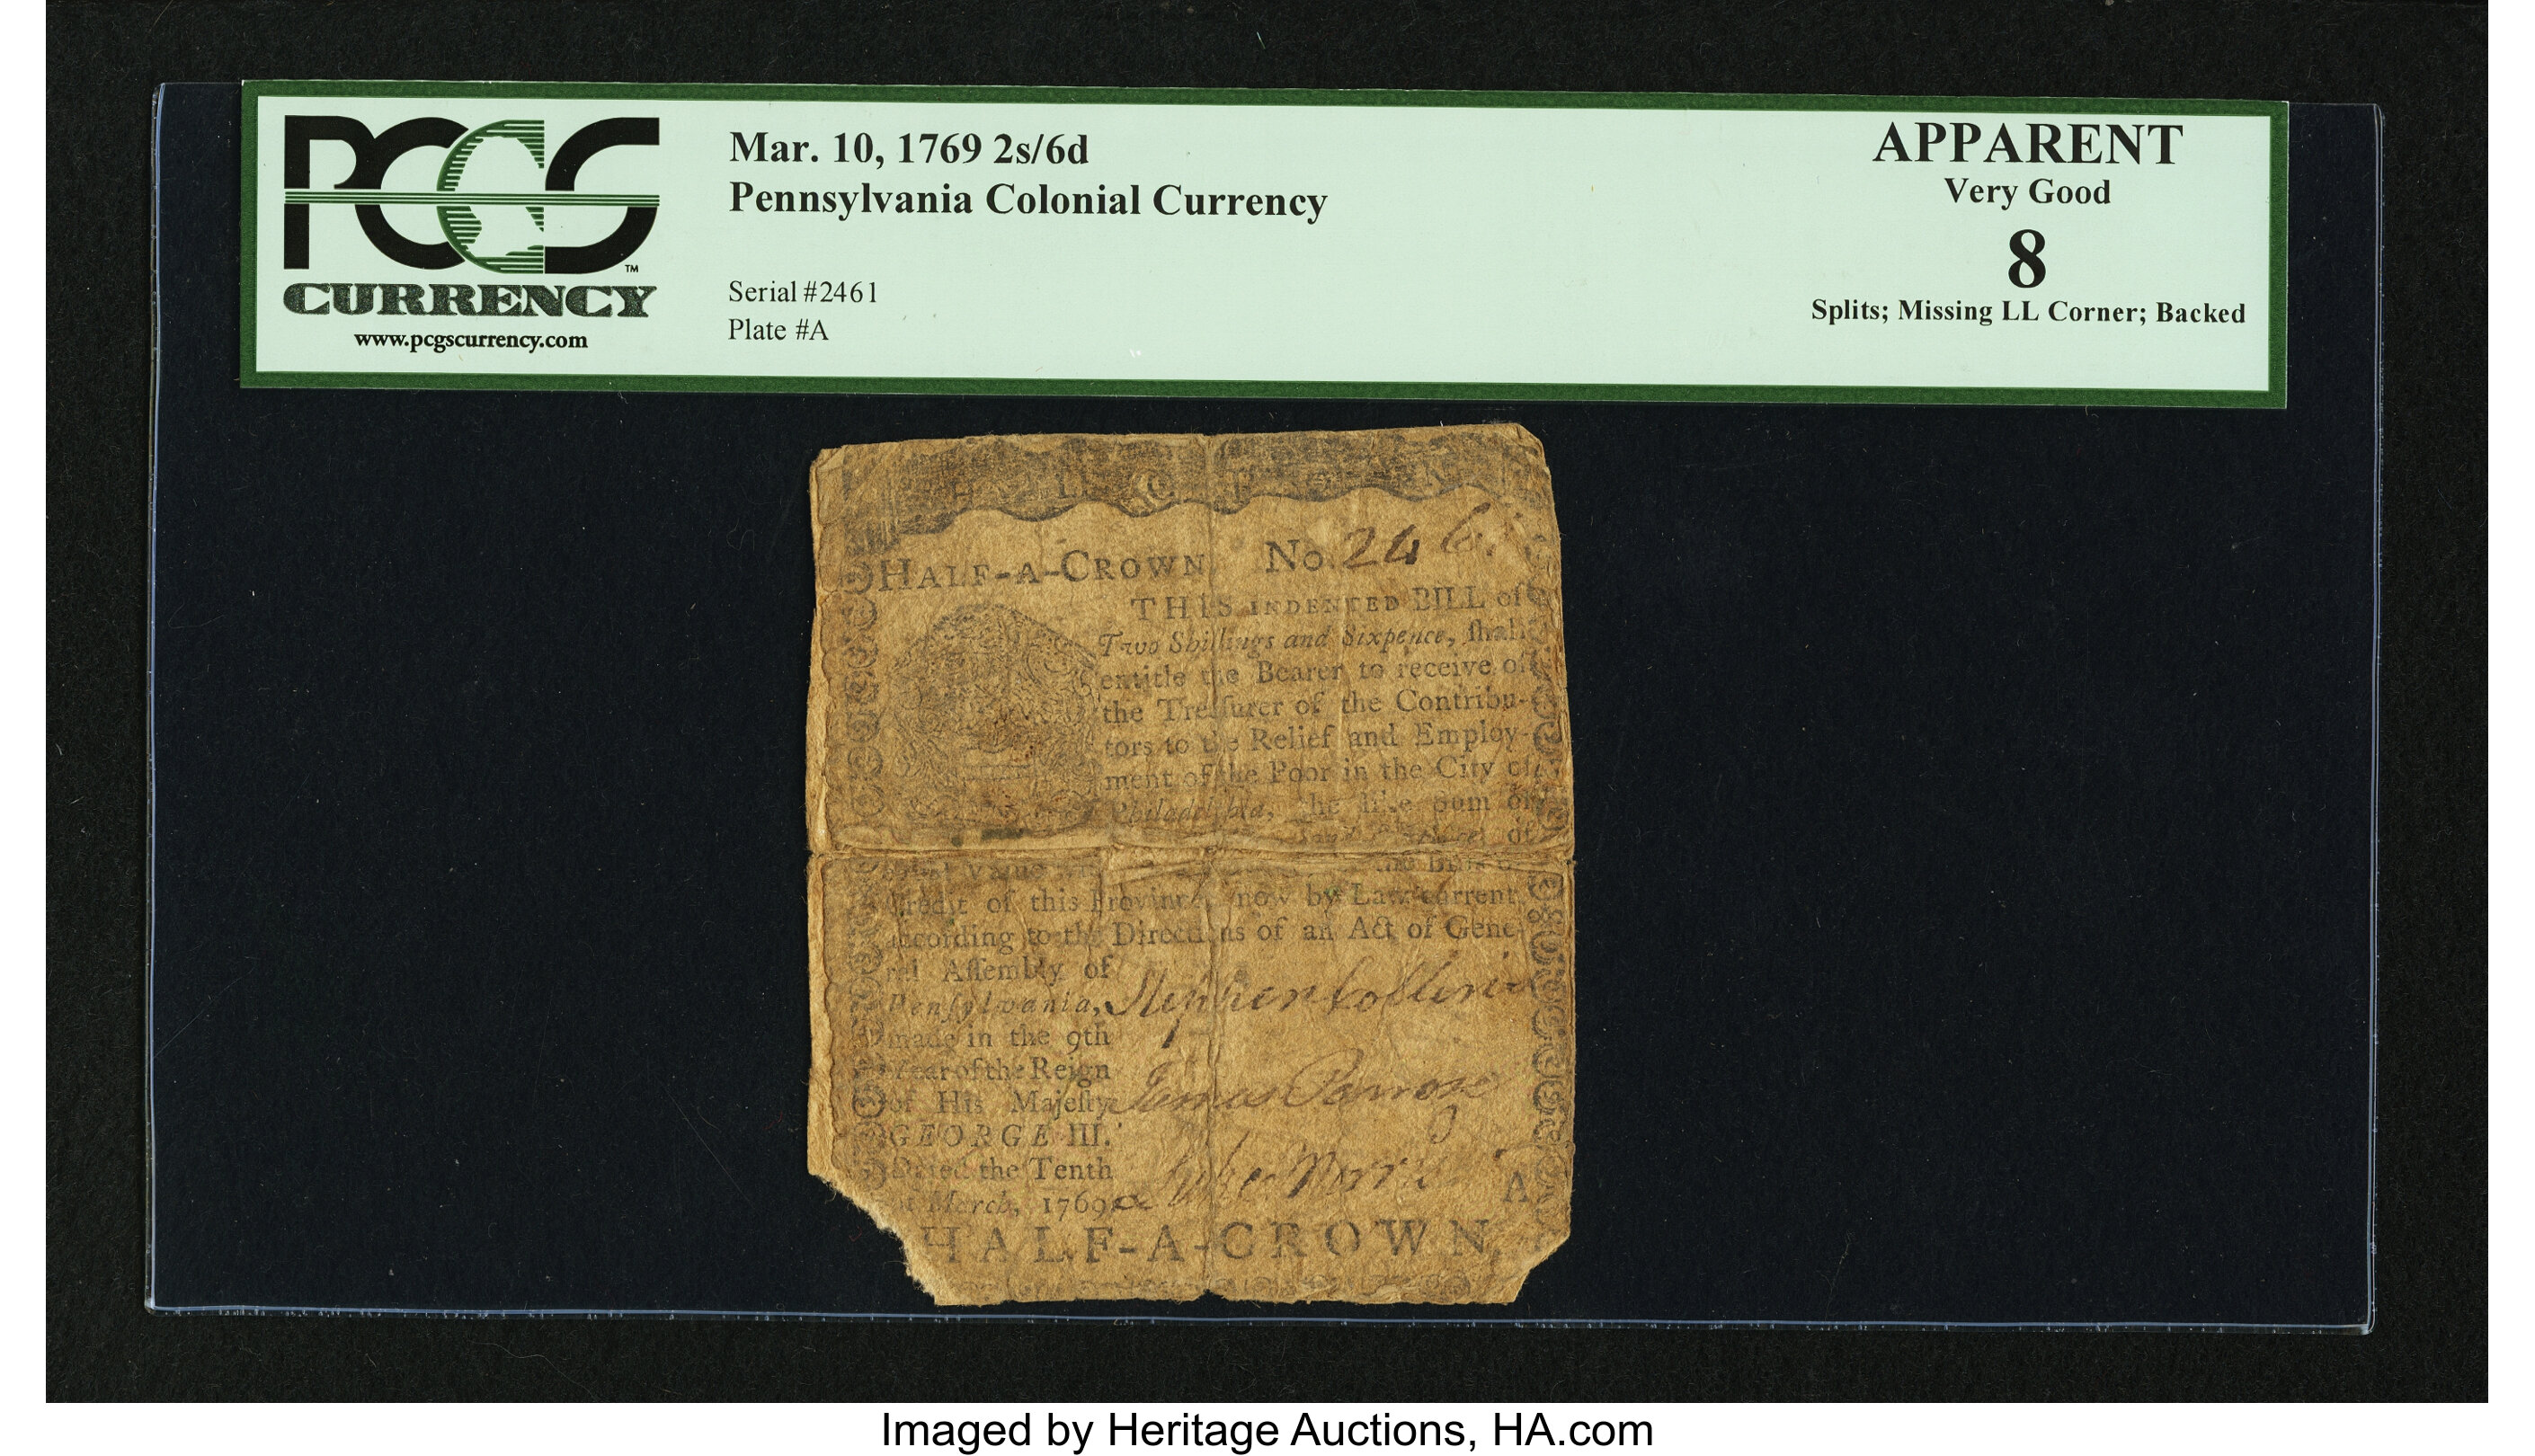 PCGS
TM
CURRENCY
www.pcgscurrency.com
Mar. 10, 1769 2s/6d
Pennsylvania Colonial Currency
Serial #2461
Plate #A
APPARENT
Very Good
8
Splits; Missing LL Corner; Backed
HALF-A-CROWN No. 246
THIS INDENTED BILL of
Two Shillings and Sixpence, ſhall
entitle the Bearer to receive of
the Treaſurer of the Contribu-
tors to the Relief and Employ-
ment of the Poor in the City of
Philadelphia, the like Sum
of
Value
Credit of this Province, now by Law current,
according to the Directions of an Act of Gene-
ral Aſſembly of
Penſylvania, Stephen Collins
made in the 9th
Year of the Reign
of His Majeſty James
GEORGE III.
Dated the Tenth
March, 1769. Morris A
HALF-A-CROWN,
Imaged by Heritage Auctions, HA.com